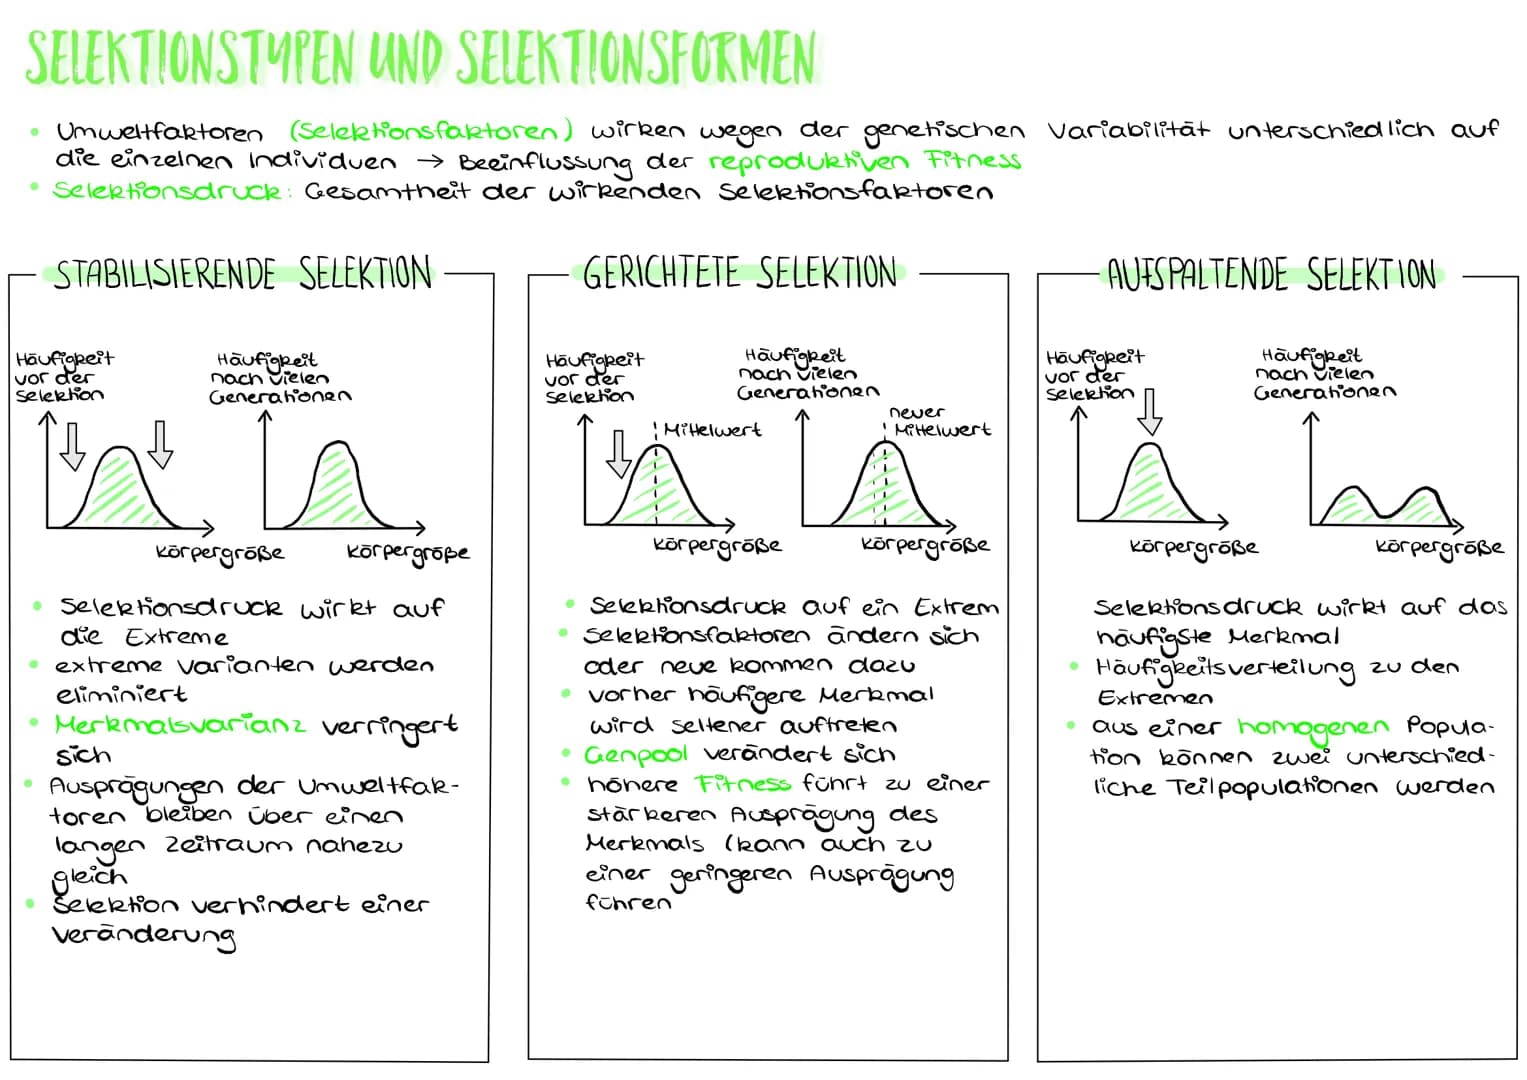 SELEKTIONSTYPEN UND SELEKTIONSFORMEN
• Umweltfaktoren (Selektionsfaktoren) wirken wegen der genetischen Variabilität unterschiedlich auf
die einzelnen Individuen → Beeinflussung der reproduktiven Fitness
• Selektionsdruck: Gesamtheit der wirkenden Selektionsfaktoren
STABILISIERENDE SELEKTION
Häufigkeit
vor der
Selektion
Häufigkeit
nach vielen
Generationen
Körpergröße
Körpergröße
• Selektionsdruck wirkt auf
die Extreme
• extreme Varianten werden
eliminiert
• Merkmalsvarianz verringert
sich
• Ausprägungen der Umweltfak-
toren bleiben über einen
langen Zeitraum nahezu
gleich
• Selektion verhindert einer
Veränderung
GERICHTETE SELEKTION
Häufigkeit
vor der
Selektion
Mittelwert
Häufigkeit
nach vielen
Generationen
neuer
Mittelwert
Körpergröße
Körpergröße
• Selektionsdruck auf ein Extrem
• Selektionsfaktoren ändern sich
oder neue kommen dazu
• vorher häufigere Merkmal
wird seltener auftreten
• Genpool verändert sich
• höhere Fitness führt zu einer
stärkeren Ausprägung des
Merkmals (kann auch zu
einer geringeren Ausprägung
führen
AUFSPALTENDE SELEKTION
Häufigkeit
vor der
Selektion
Häufigkeit
nach vielen
Generationen
Körpergröße
Körpergröße
Selektionsdruck wirkt auf das
häufigste Merkmal
• Häufigkeitsverteilung zu den
Extremen
• aus einer homogenen Popula-
tion können zwei unterschied-
liche Teilpopulationen werden